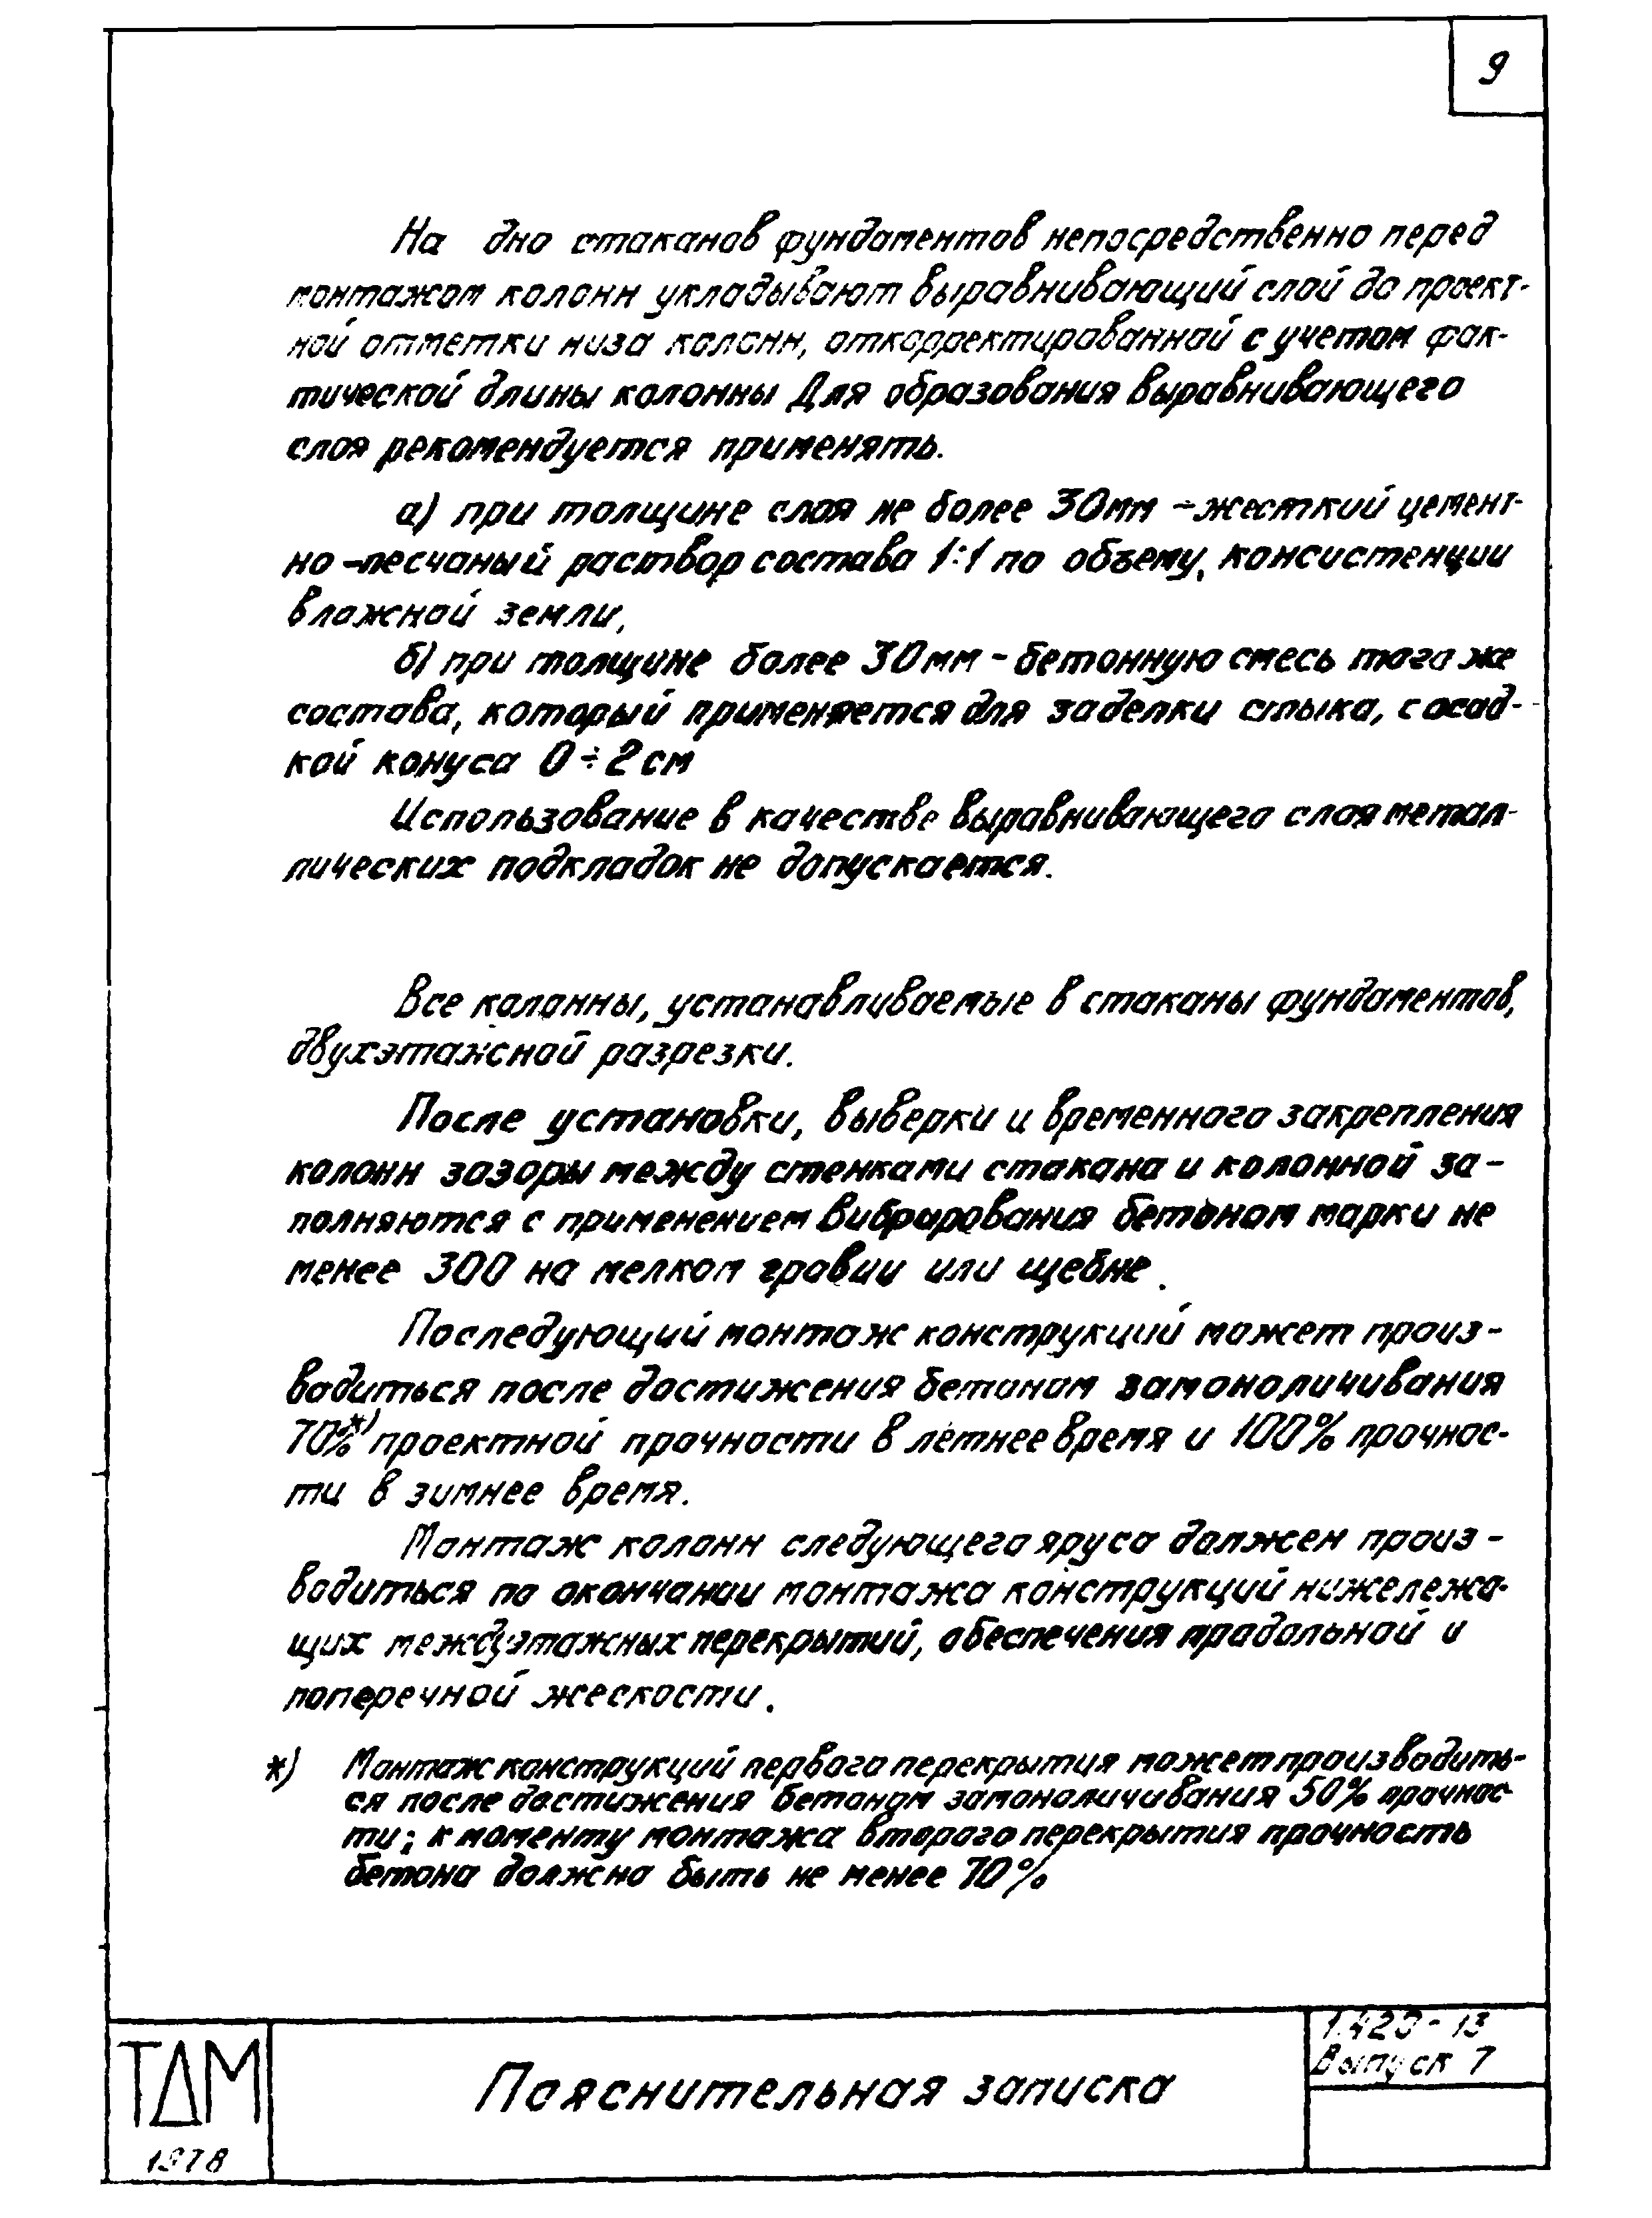 9
На дно стаканов фундаментов непосредственно перед
монтажом колонн укладывают выравнивающий слой до проект-
ной отметки низа колонн, откорректированной с учетом фак-
тической длины колонны Для образования выравнивающего
слоя рекомендуется применять.
а) при толщине слоя не более 30мм - жесткий цемент-
но-песчаный раствор состава 1:1 по объему, консистенции
влажной земли,
б) при толщине более 30мм - бетонную смесь того же
состава, который применяется для заделки стыка, с осад-
кой конуса 0÷2см
Использование в качестве выравнивающего слоя метал-
лических подкладок не допускается.
Все колонны, устанавливаемые в стаканы фундаментов,
двухэтажной разрезки.
После установки, выверки и временного закрепления
колонн зазоры между стенками стакана и колонной за-
полняются с применением вибрирования бетоном марки не
менее 300 на мелком гравии или щебне.
Последующий монтаж конструкций может произ-
водиться после достижения бетоном замоноличивания
70%*) проектной прочности в летнее время и 100% прочнос-
ти в зимнее время.
Монтаж колонн следующего яруса должен произ-
водиться по окончании монтажа конструкций нижележа-
щих междуэтажных перекрытий, обеспечения продольной и
поперечной жескости.
*) Монтаж конструкций первого перекрытия может производить-
ся после достижения бетоном замоноличивания 50% прочнос-
ти; к моменту монтажа второго перекрытия прочность
бетона должна быть не менее 70%
ТДМ
1978
Пояснительная записка
1.420-13
Выпуск 7